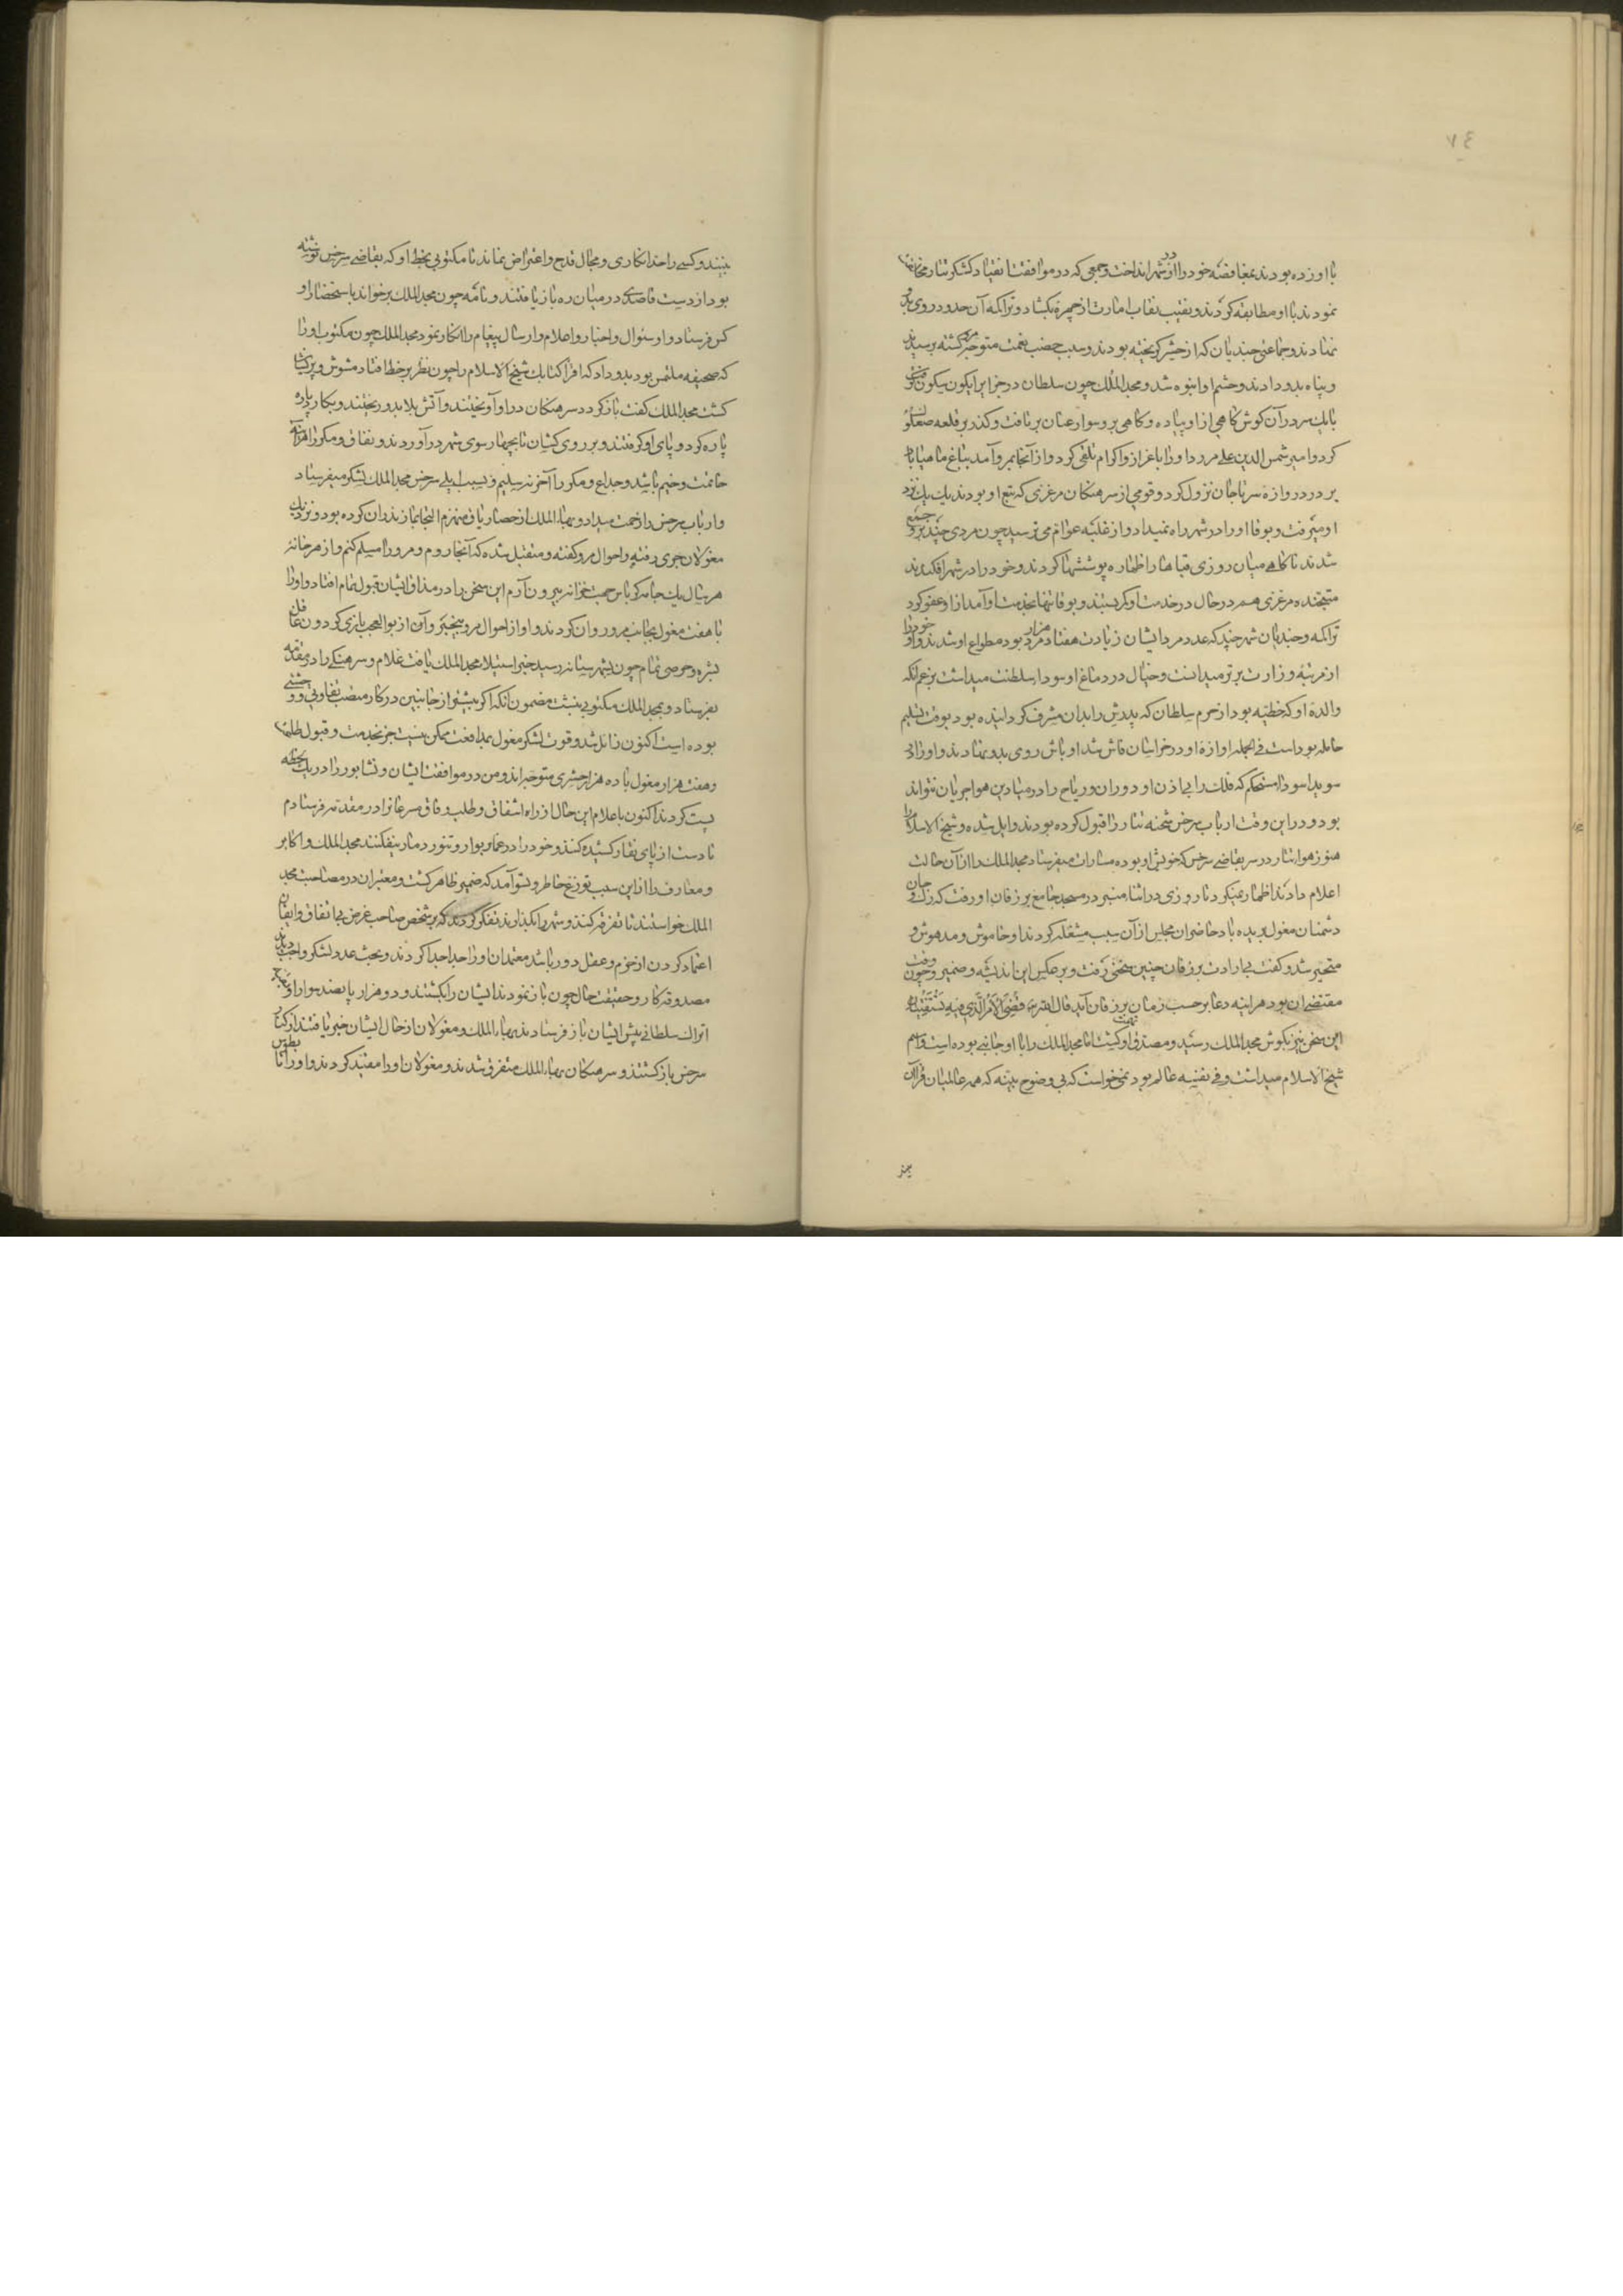 ٧٤
با او زده بودند بمغافصه خود را از در شهر انداخت و جمعی که در موافقت انقیاد لشکر تتار مخالفت
نمودند با او مطابقه کردند و نقیب نقاب امارت از چهره بگشاد و تراکمه آن حدود روی بدو
نهادند و جماعتی جندیان که از حشر گریخته بودند و سبب خصب نعمت متوجه مرو گشته برسیدند
و پناه بدو دادند و حشم او انبوه شد و مجد الملک چون سلطان در جزایر ابکون
با یک سر دراز گوش گاهی ازو پیاده و گاهی برو سوار عنان برتافت و گذر بر قلعه صعلوک
کرد و امیر شمس الدین علی مورد او را باعزاز و اکرام تلقی کرد و از آنجا بمرو آمد بباغ ماهیاباد
بر در دروازه سرماجان نزول کرد و قومی از سرهنگان مرغزی که تبع او بودند یک یک نزد
او میرفت و بوقا او را در شهر راه نمیداد و از غلبه عوام می‌ترسید چون مردی چند برو جمع
شدند ناگاهی میان روزی قباها را ظهاره پوششها کردند و خود را در شهر افکندند
متجنده مرغزی هم در حال در خدمت او کمر بستند و بوقا تنها بخدمت او آمد از او عفو کرد
تراکمه و جندیان شهر چند که عدد مرد ایشان زیادت هفتاد هزار مرد بود مطواع او شدند و او خود را
از مرتبه وزارت برتر میدانست و خیال در دماغ او سودای سلطنت میداشت بزعم آنکه
والده او که خطیه بود از حرم سلطان که پدرش را بدان مشرف گردانیده بود بوقت تسلیم
حامله بودست فی الجمله آوازه او در خراسان فاش شد اوباش روی بدو نهادند و او را در
سویدا سودا مستحکم که فلک را بی اذن او دوران و ریاح را در میادین هوا جریان نتواند
بود و در این وقت ارباب سرخس شحنه تتار را قبول کرده بودند و ایل شده و شیخ الاسلام را
هنوز هوا تتار در سر بقاضی سرخس که خویش او بوده مسارات میفرستاد مجد الملک را از آن حالت
اعلام دادند اظهار نمیکرد تا روزی در اثنا منبر در مسجد جامع بر زفان او رفت که رگ و جان
دشمنان مغول بریده باد حاضران مجلس از آن سبب مشغله کردند او خاموش و مدهوش و
متحیر شد و گفت بی ارادت بر زفان چنین سخنی رفت و بر عکس این اندیشه و ضمیر و چون وقت
مقتضی آن بود هراینه دعا بر حسب زمان بر زفان آید قال الله تعالی قضی الامر الذی فیه تستفتیان
این سخن نیز بگوش مجد الملک رسید و مصدق تهمت او گشت اما مجد الملک را با او جانبی بوده است و اسم
شیخ الاسلام میداشت و فی نفسه عالم بود نمیخواست که بی وضوح بینه که همه عالمیان فراآن
بینند و کسی را حد انکاری و مجال قدح و اعتراض نماند تا مکتوبی بخط او که بقاضی سرخس نوشته
بود از دست قاصدی در میان ره باز یافتند و نامه چون مجد الملک برخواند باستحضار او
کس فرستاد و او سئوال و اخبار و اعلام و ارسال پیغام را انکار نمود مجد الملک چون مکتوب او را
که صحیفه ملتمس بود بدو داد که اقرا کتابک شیخ الاسلام را چون نظر بر خط افتاد مشوش و پریشان
گشت مجد الملک گفت بازگرد سرهنگان در او آویختند و آتش بلا بدو ریختند و بکارد پاره
پاره کرد و پای او گرفتند و بر روی کشان تا بچهار سوی شهر در آوردند و نفاق و مکر را هراینه
خاتمت وخیم باشد و خداع و مکر را آخر نه سلیم و بسبب ایلی سرخس مجد الملک لشکر میفرستاد
و ارباب سرخس را زحمت میداد و بهاء الملک از حصار یاق منهزم التجا بمازندران کرده بود و نزدیک
مغولان جری رفته و احوال مرو گفته و متقبل شده که آنجا روم و مرو را مسلم کنم و از هر خانه
هر سال یک جامه کرباس جهت خزانه بیرون آرم این سخن را در مذاق ایشان قبول تمام افتاد و او را
با هفت مغول بجانب مرو روان کردند و او از احوال مرو بیخبر و آن از بوالعجب بازی گردون غافل
بشره و حرصی تمام چون بشهرستانه رسید خبر استیلا مجد الملک یافت غلام و سرهنگی را در مقدمه
بفرستاد و بمجد الملک مکتوبی بنبشت مضمون آنکه اگر پیشتر از جانبین در کار منصب تفاوتی و وحشتی
بوده است اکنون زایل شد و قوت لشکر مغول بمدافعت ممکن نیست جز بخدمت و قبول طاعت
و هفت هزار مغول با ده هزار حشری متوجه‌اند و من در موافقت ایشان و نشابور را در یک لحظه
پست کردند اکنون باعلام این حال از راه اشفاق و طلب وفاق مسرعانرا در مقدمه فرستادم
تا دست از پای نقار کشیده کنند و خود را در غمار بوار و تنور دمار نیفکنند مجد الملک و اکابر
و معارف را از این سبب توزع خاطر روی نمود آمد که ضمیر ظاهر گشت و معتبران در مصاحبت مجد
الملک خواستند تا تفرقه کنند و شهر را بگذارند تفکر کردند که بر شخص صاحب غرض بی اتفاق و ایقان
اعتماد کردن از حزم و عقل دور باشد معتمدان او را جدا جدا کردند و بحث عدد لشکر واجب دیدند
مصدوقه کار و حقیقت حال چون باز نمودند ایشان را بکشتند و دو هزار و پانصد سوار از
اتراک سلطانی پیش ایشان باز فرستادند بهاء الملک و مغولان از حال ایشان خبر یافتند از کنار
سرخس بازگشتند و سرهنگان بهاء الملک متفرق شدند و مغولان او را مقید کردند و او را تا بطوس